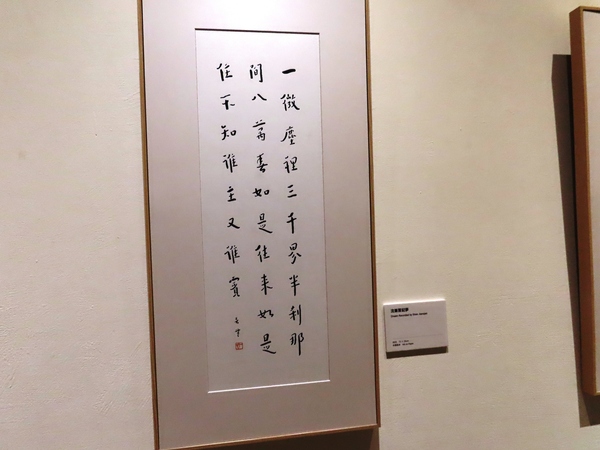 一微塵裡三千界半刹那
間八萬春如是往来如是
住不知誰主又誰賓